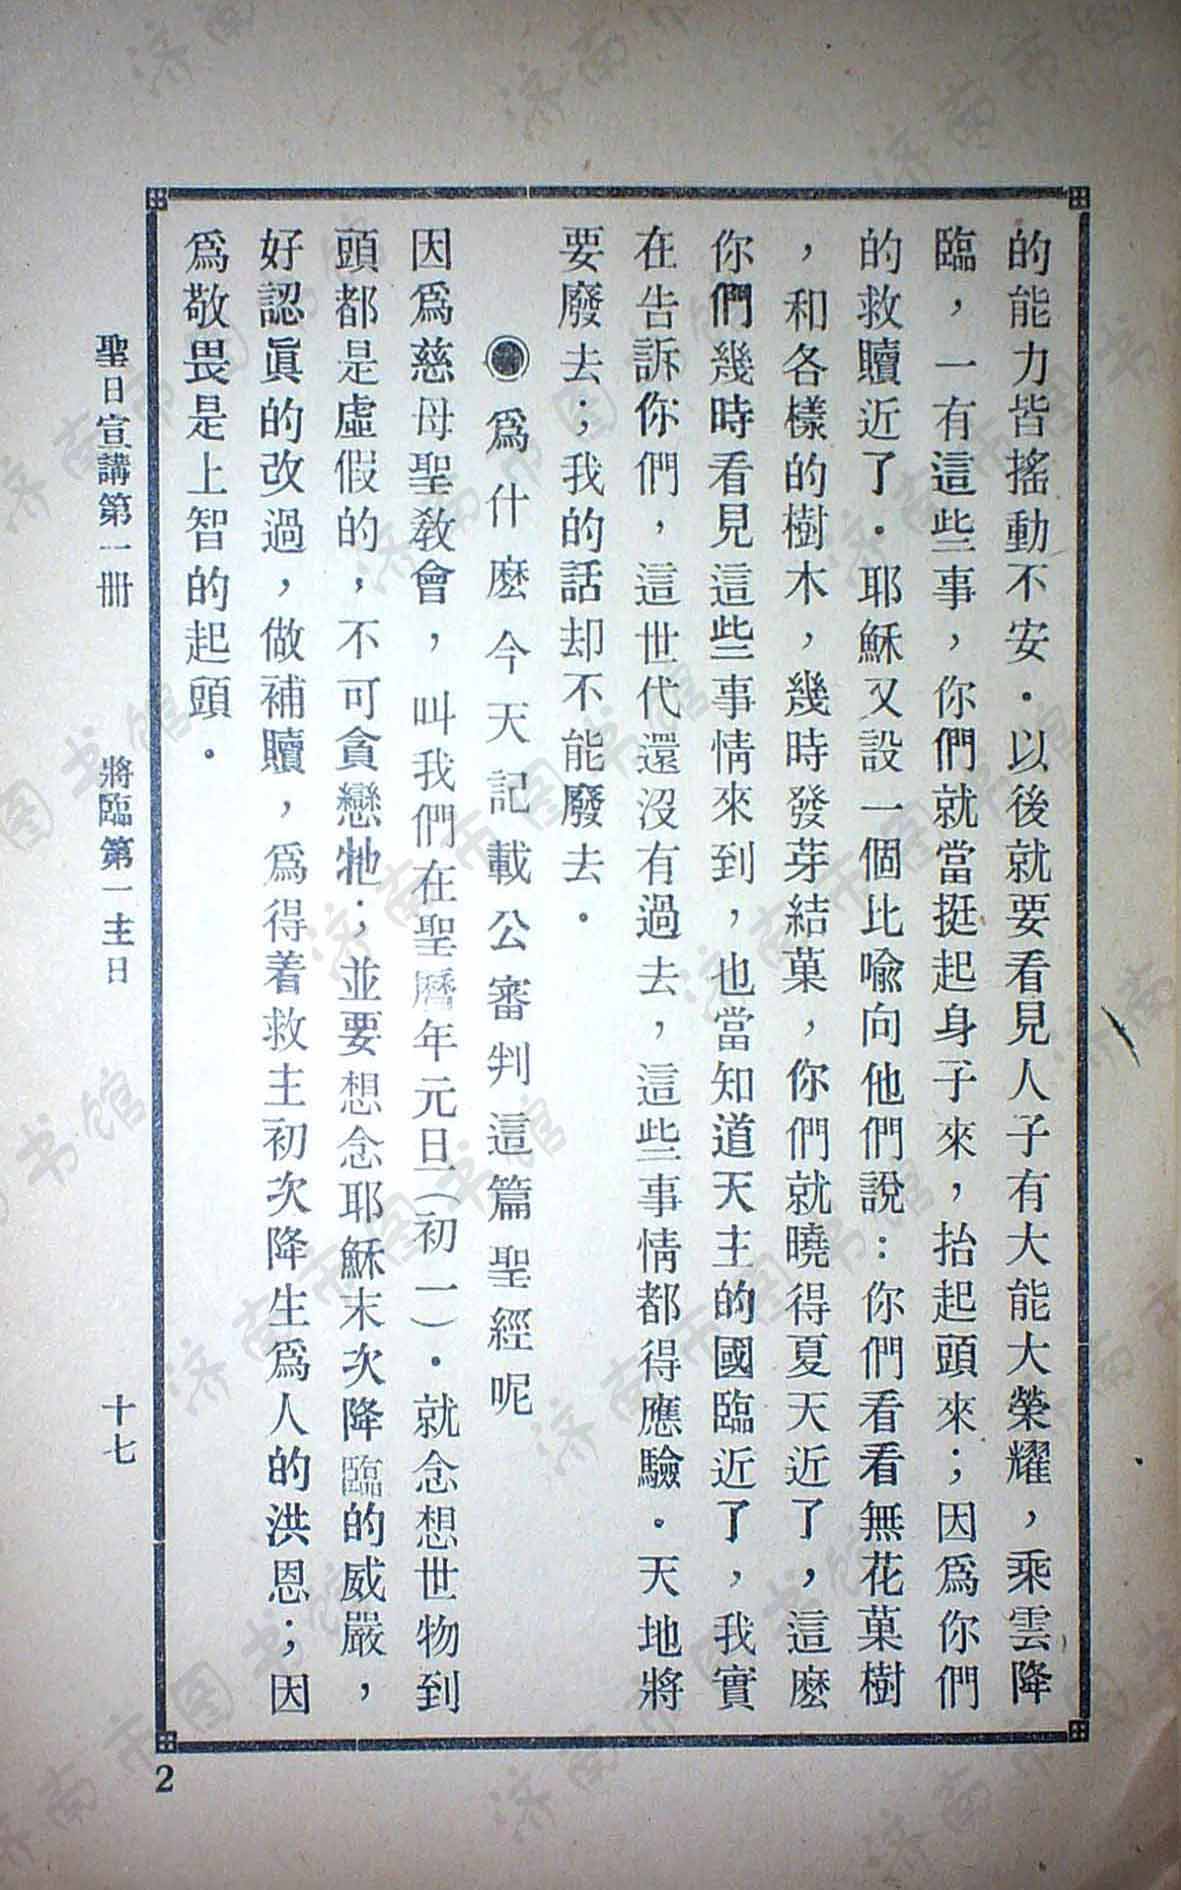 的能力皆搖動不安．以後就要看見人子有大能大榮耀，乘雲降
臨，一有這些事，你們就當挺起身子來，抬起頭來；因爲你們
的救贖近了．耶穌又設一個比喻向他們說：你們看看無花菓樹
，和各樣的樹木，幾時發芽結菓，你們就曉得夏天近了，這麽
你們幾時看見這些事情來到，也當知道天主的國臨近了，我實
在告訴你們，這世代還沒有過去，這些事情都得應驗．天地將
要廢去；我的話却不能廢去．
◉爲什麽今天記載公審判這篇聖經呢
因爲慈母聖教會，叫我們在聖曆年元旦(初一)．就念想世物到
頭都是虛假的，不可貪戀牠；並要想念耶穌末次降臨的威嚴，
好認眞的改過，做補贖，爲得着救主初次降生爲人的洪恩；因
爲敬畏是上智的起頭．
聖日宣講第一冊　將臨第一主日　十七
2
济南市图书馆